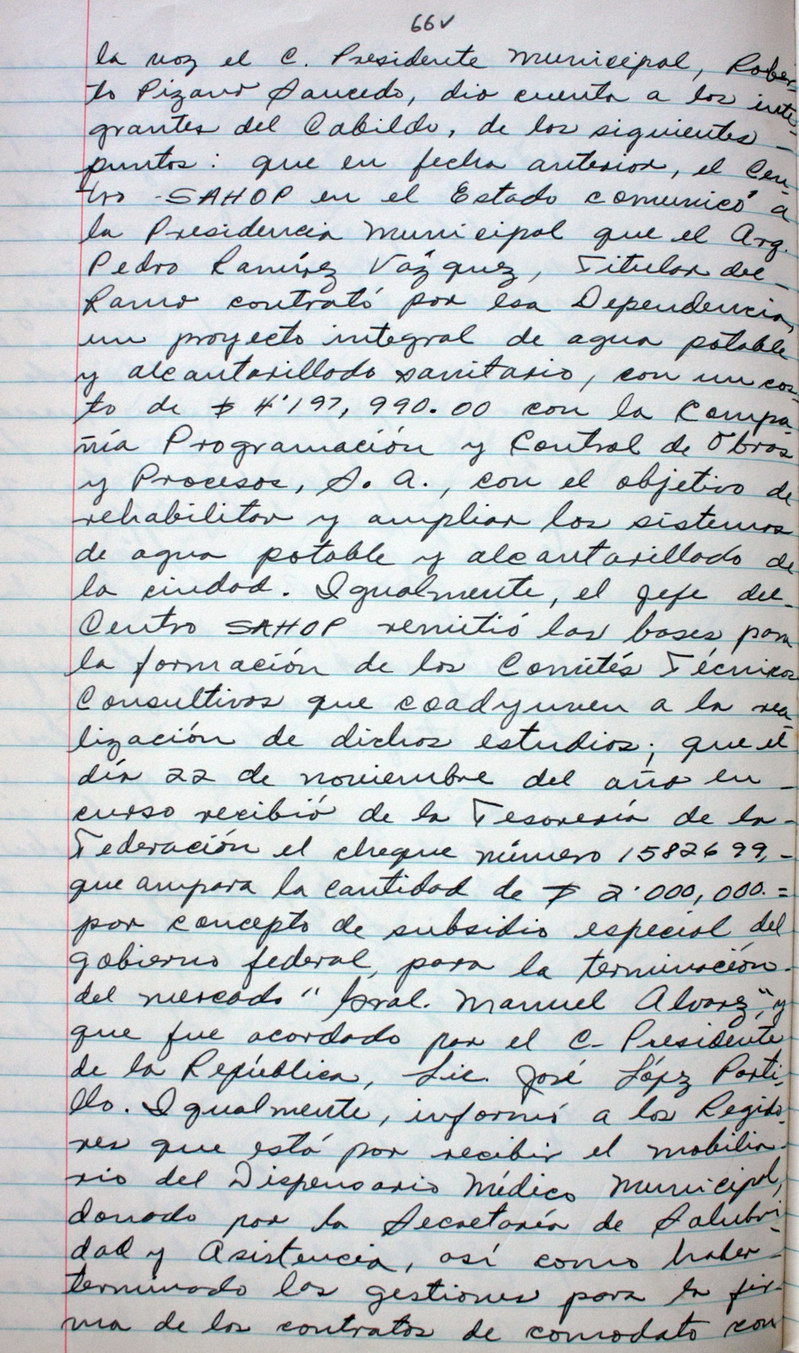 66v
la voz el C. Presidente Municipal, Rober-
to Pizano Saucedo, dio cuenta a los inte-
grantes del Cabildo, de los siguientes -
puntos: que en fecha anterior, el Cen-
tro -SAHOP en el Estado comunicó a
la Presidencia Municipal que el Arq.
Pedro Ramírez Vázquez, Titular del-
Ramo contrató por esa Dependencia,
un proyecto integral de agua potable
y alcantarillado sanitario, con un cos-
to de $ 4'197,990.00 con la Compa-
ñía Programación y Control de Obras
y Procesos, S. A., con el objetivo de
rehabilitar y ampliar los sistemas
de agua potable y alcantarillado de
la ciudad. Igualmente, el Jefe del-
Centro SAHOP remitió las bases para
la formación de los Comités Técnicos
Consultivos que coadyuven a la rea-
lización de dichos estudios; que el
día 22 de noviembre del año en -
curso recibió de la Tesorería de la-
Federación el cheque número 1582699,-
que ampara la cantidad de $ 2'000,000.=
por concepto de subsidio especial del
gobierno federal, para la terminación-
del mercado "Gral. Manuel Alvarez", y
que fue acordado por el C. Presidente
de la República, Lic. José López Porti-
llo. Igualmente, informó a los Regido-
res que está por recibir el mobilia-
rio del Dispensario Médico Municipal,
donado por la Secretaría de Salubri-
dad y Asistencia, así como haber-
terminado las gestiones para la fir-
ma de los contratos de comodato con